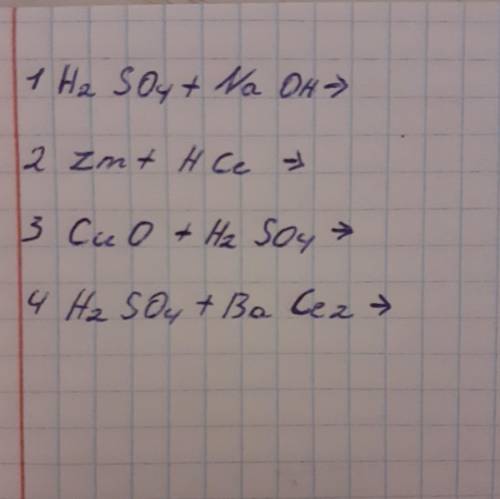 1 H2 SO4 + Na OH →
2 Zn + H Cl →
3 Cu O + H2 SO4 →
4 H2 SO4 + Ba Cl2 →